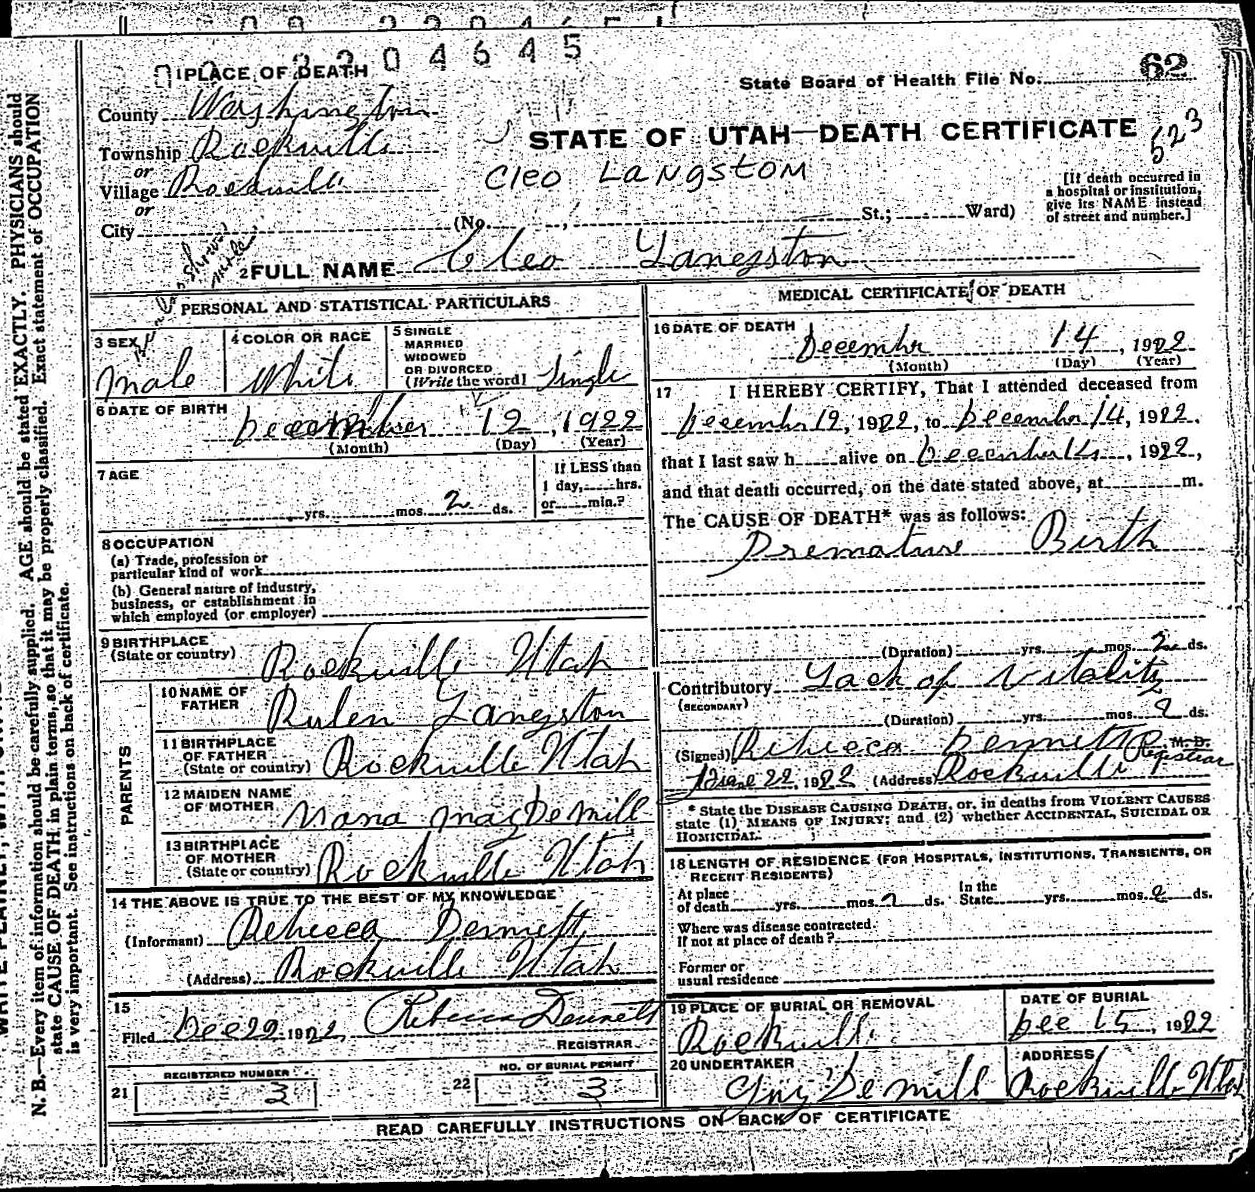 2204645
62
State Board of Health File No.
1 PLACE OF DEATH
County Washington
Township Rockville
or
Village Rockville
or
City (No. , St.; Ward)
STATE OF UTAH—DEATH CERTIFICATE
523
Cleo Langstom
[If death occurred in
a hospital or institution,
give its NAME instead
of street and number.]
2 FULL NAME Cleo Langston
PERSONAL AND STATISTICAL PARTICULARS
3 SEX
Male
4 COLOR OR RACE
White
5 SINGLE
MARRIED
WIDOWED
OR DIVORCED
(Write the word) Single
6 DATE OF BIRTH
December 12, 1922
(Month) (Day) (Year)
7 AGE
yrs. mos. 2 ds.
If LESS than
1 day, hrs.
or min.?
8 OCCUPATION
(a) Trade, profession or
particular kind of work
(b) General nature of industry,
business, or establishment in
which employed (or employer)
9 BIRTHPLACE
(State or country) Rockville Utah
PARENTS
10 NAME OF
FATHER Rulen Langston
11 BIRTHPLACE
OF FATHER
(State or country) Rockville Utah
12 MAIDEN NAME
OF MOTHER DeMill
13 BIRTHPLACE
OF MOTHER
(State or country) Rockville Utah
14 THE ABOVE IS TRUE TO THE BEST OF MY KNOWLEDGE
(Informant) Rebecca Dennett
(Address) Rockville Utah
15
Filed Dec 22 1922 Rebecca Dennett
REGISTRAR
21
REGISTERED NUMBER
3
22
NO. OF BURIAL PERMIT
3
MEDICAL CERTIFICATE OF DEATH
16 DATE OF DEATH
December 14, 1922
(Month) (Day) (Year)
17 I HEREBY CERTIFY, That I attended deceased from
December 12, 1922, to December 14, 1922.
that I last saw h alive on December 14, 1922,
and that death occurred, on the date stated above, at m.
The CAUSE OF DEATH* was as follows:
Premature Birth
(Duration) yrs. mos. 2 ds.
Contributory Lack of Vitality
(SECONDARY)
(Duration) yrs. mos. 2 ds.
(Signed) Rebecca Dennett M. D.
Registrar
22, 1922 (Address) Rockville
* State the DISEASE CAUSING DEATH, or, in deaths from VIOLENT CAUSES
state (1) MEANS OF INJURY; and (2) whether ACCIDENTAL, SUICIDAL OR
HOMICIDAL.
18 LENGTH OF RESIDENCE (FOR HOSPITALS, INSTITUTIONS, TRANSIENTS, OR
RECENT RESIDENTS)
At place
of death yrs. mos. 2 ds.
In the
State yrs. mos. 2 ds.
Where was disease contracted
If not at place of death?
Former or
usual residence
19 PLACE OF BURIAL OR REMOVAL
Rockville
DATE OF BURIAL
Dec 15, 1922
20 UNDERTAKER
Guy DeMill
ADDRESS
Rockville Utah
READ CAREFULLY INSTRUCTIONS ON BACK OF CERTIFICATE
N. B.—Every item of information should be carefully supplied. AGE should be stated EXACTLY. PHYSICIANS should
state CAUSE OF DEATH in plain terms, so that it may be properly classified. Exact statement of OCCUPATION
is very important. See instructions on back of certificate.